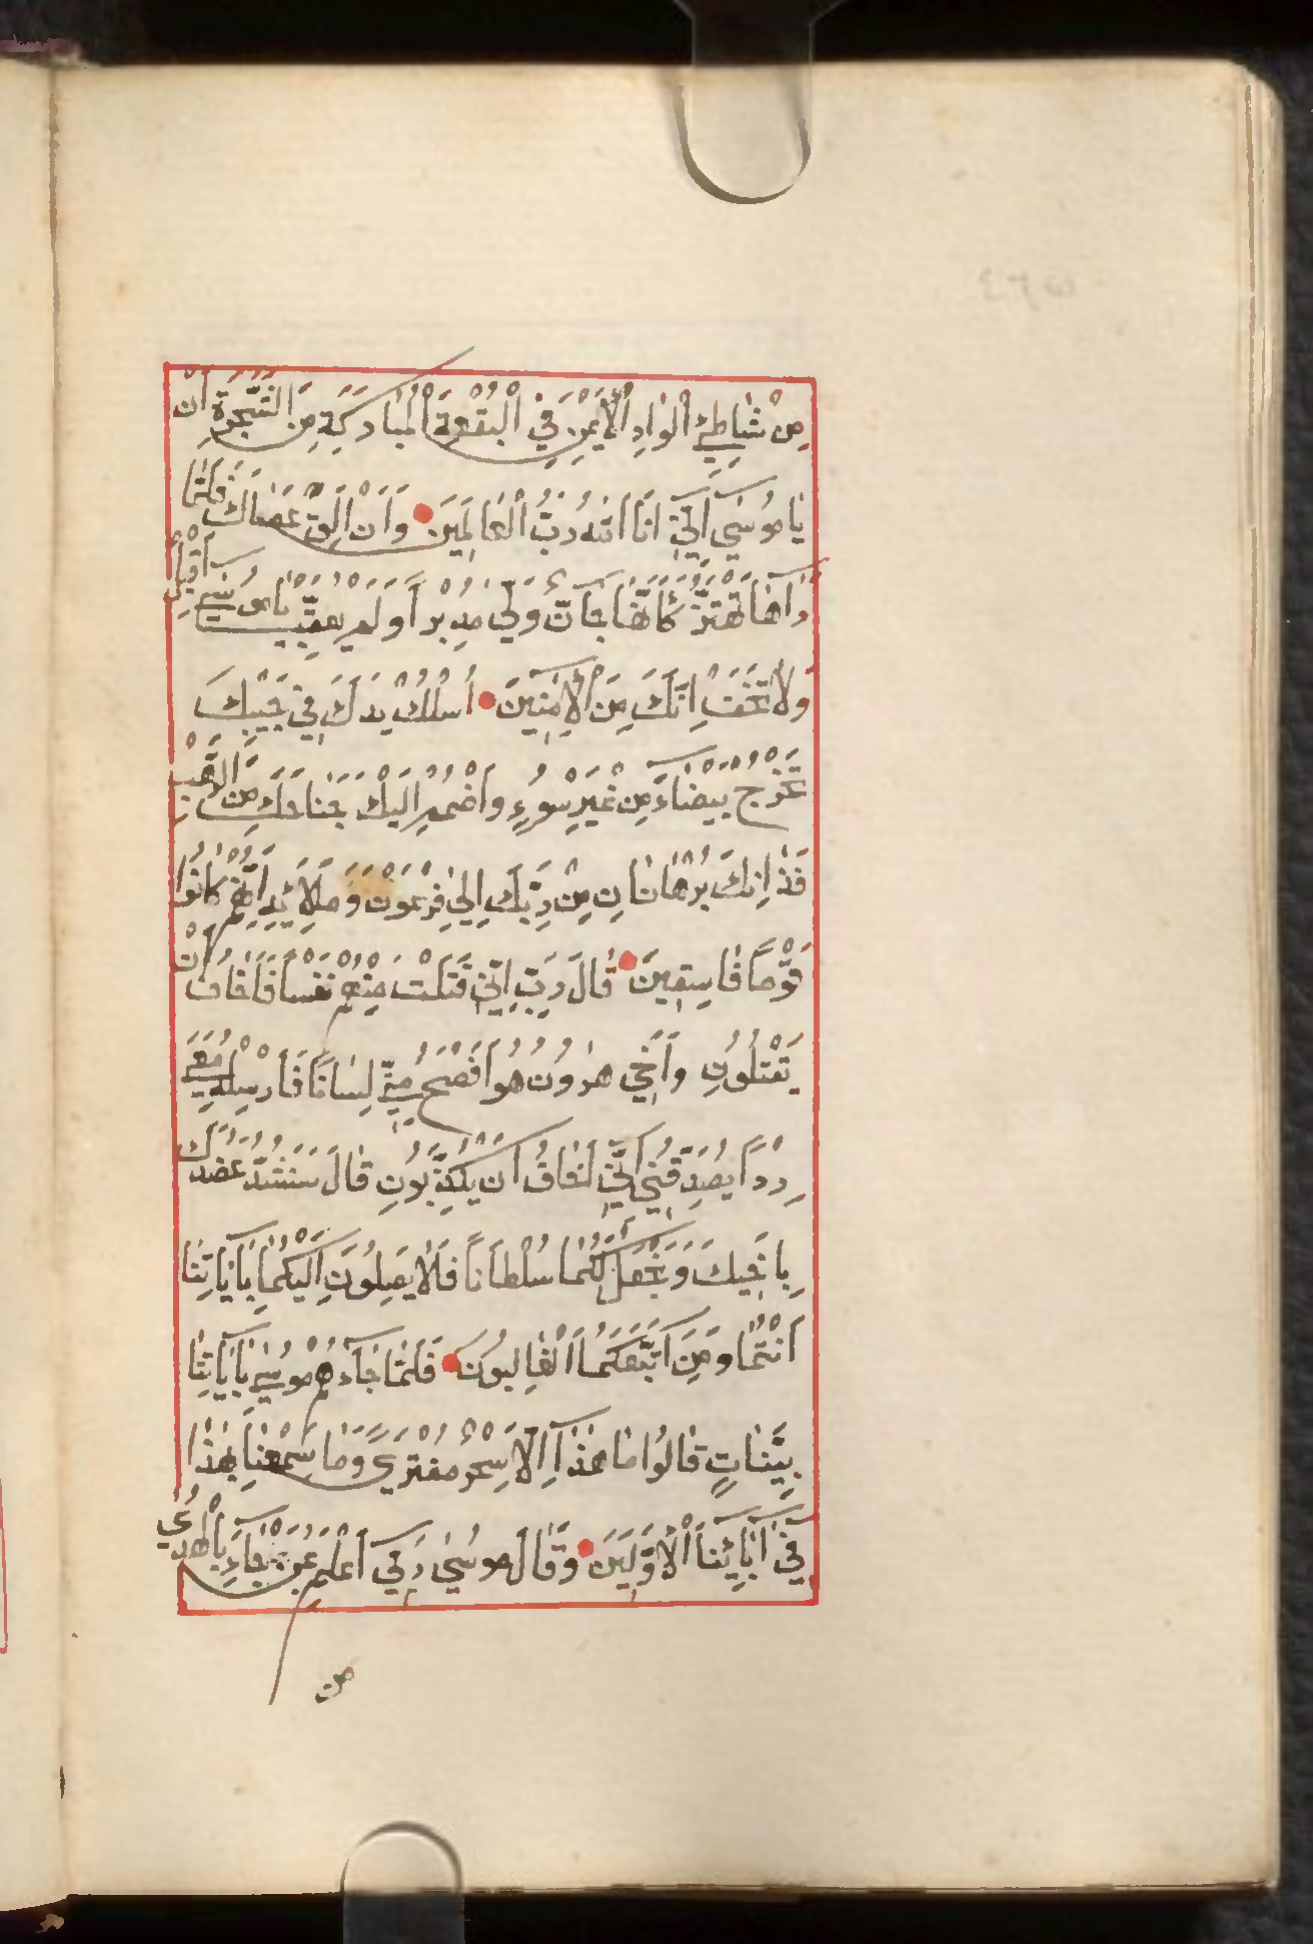 مِنْ شَاطِئِ الْوَادِ الْأَيْمَنِ فِي الْبُقْعَةِ الْمُبَارَكَةِ مِنَ الشَّجَرَةِ أَنْ
يَا مُوسَى إِنِّي أَنَا اللهُ رَبُّ الْعَالَمِينَ وَأَنْ أَلْقِ عَصَاكَ فَلَمَّا
رَآهَا تَهْتَزُّ كَأَنَّهَا جَانٌّ وَلَّى مُدْبِرًا وَلَمْ يُعَقِّبْ يَا مُوسَى أَقْبِلْ
وَلَا تَخَفْ إِنَّكَ مِنَ الْآمِنِينَ اُسْلُكْ يَدَكَ فِي جَيْبِكَ
تَخْرُجْ بَيْضَاءَ مِنْ غَيْرِ سُوءٍ وَاضْمُمْ إِلَيْكَ جَنَاحَكَ مِنَ الرَّهْبِ
فَذَانِكَ بُرْهَانَانِ مِنْ رَبِّكَ إِلَى فِرْعَوْنَ وَمَلَائِهِ إِنَّهُمْ كَانُوا
قَوْمًا فَاسِقِينَ قَالَ رَبِّ إِنِّي قَتَلْتُ مِنْهُمْ نَفْسًا فَأَخَافُ أَنْ
يَقْتُلُونِ وَأَخِي هٰرُونُ هُوَ أَفْصَحُ مِنِّي لِسَانًا فَأَرْسِلْهُ مَعِيَ
رِدْءًا يُصَدِّقُنِي إِنِّي أَخَافُ أَنْ يُكَذِّبُونِ قَالَ سَنَشُدُّ عَضُدَكَ
بِأَخِيكَ وَنَجْعَلُ لَكُمَا سُلْطَانًا فَلَا يَصِلُونَ إِلَيْكُمَا بِآيَاتِنَا
أَنْتُمَا وَمَنِ اتَّبَعَكُمَا الْغَالِبُونَ فَلَمَّا جَاءَهُمْ مُوسَى بِآيَاتِنَا
بَيِّنَاتٍ قَالُوا مَا هٰذَا إِلَّا سِحْرٌ مُفْتَرًى وَمَا سَمِعْنَا بِهٰذَا
فِي آبَائِنَا الْأَوَّلِينَ وَقَالَ مُوسَى رَبِّي أَعْلَمُ بِمَنْ جَاءَ بِالْهُدَى
من